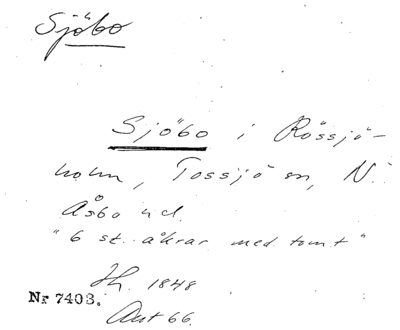 Sjöbo
Sjöbo i Rössjö-
holm, Tossjö sn, N.
Åsbo hd.
"6 st. åkrar med tomt"
Jh. 1848
Nr 7403.
Akt 66.